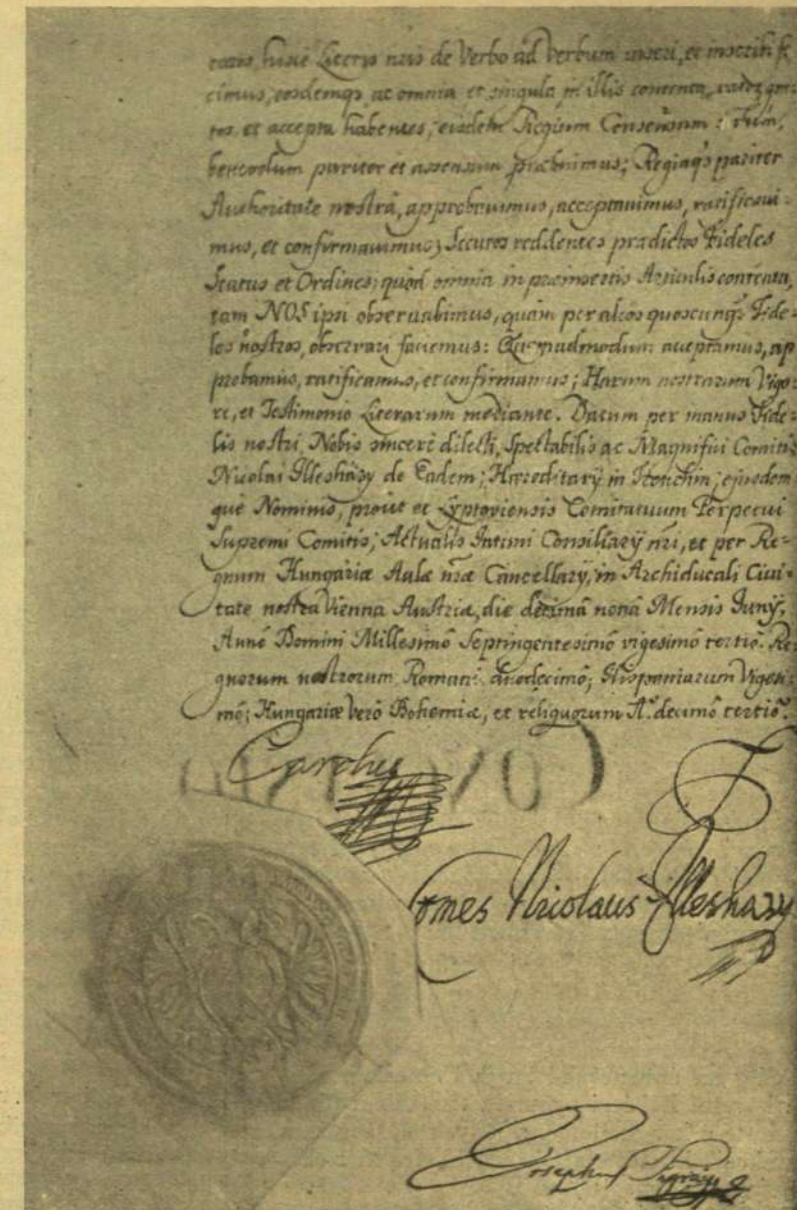 huic Literis nris de Verbo ad verbum inseri, et inscribi fe
cimus, eosdemq; ac omnia et singula in illis contenta, ratos gra-
tos, et accepta habentes; eisdem Regium Consensum
benevolum pariter et assensum præbuimus; Regiaq; pariter
Authoritate nostrâ, approbavimus, acceptavimus, ratificavi-
mus, et confirmavimus; Securos reddentes prædictos Fideles
Status et Ordines; quòd omnia in præinsertis Articulis contenta,
tam NOS ipsi observabimus, quàm per alios quoscunq; Fide-
les nostros, observari faciemus: Quemadmodum acceptamus, ap
probamus, ratificamus, et confirmamus; Harum nostrarum Vigo-
re, et Testimonio Literarum mediante. Datum per manus Fide-
lis nostri, Nobis sincerè dilecti, Spectabilis ac Magnifici Comitis
Nicolai Illesházy de Eadem; Hæreditarÿ in Trenchin; ejusdem
què Nominis, prout et Lyptoviensis Comitatuum Perpetui
Supremi Comitis; Actualis Intimi Consiliarÿ nri, et per Re-
gnum Hungariæ Aulæ nræ Cancellarÿ, in Archiducali Civi-
tate nostra Vienna Austriæ, die decimâ nonâ Mensis Junÿ,
Annô Domini Millesimô Septingentesimô vigesimô tertiô. Re
gnorum nostrorum Romani duodecimô; Hispaniarum Vigesi-
mô; Hungariæ verò Bohemiæ, et reliquorum A.º decimô tertiô.
Carolus
Comes Nicolaus Illeshazy
Josephus